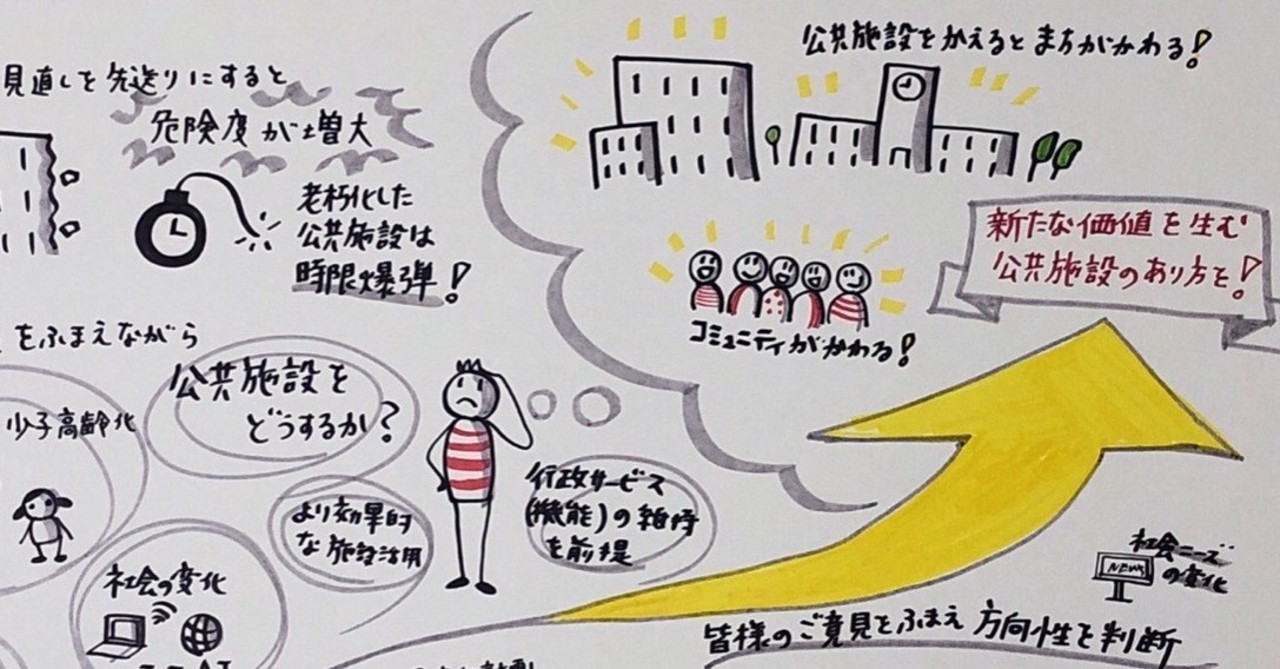 見直しを先送りにすると
危険度が増大
老朽化した
公共施設は
時限爆弾!
公共施設をかえるとまちがかわる!
コミュニティがかわる!
新たな価値を生む
公共施設のあり方を!
をふまえながら
公共施設を
どうするか?
少子高齢化
より効果的
な施設活用
行政サービス
(機能)の維持
を前提
社会の変化
社会ニーズ
の変化
NEWS
皆様のご意見をふまえ方向性を判断